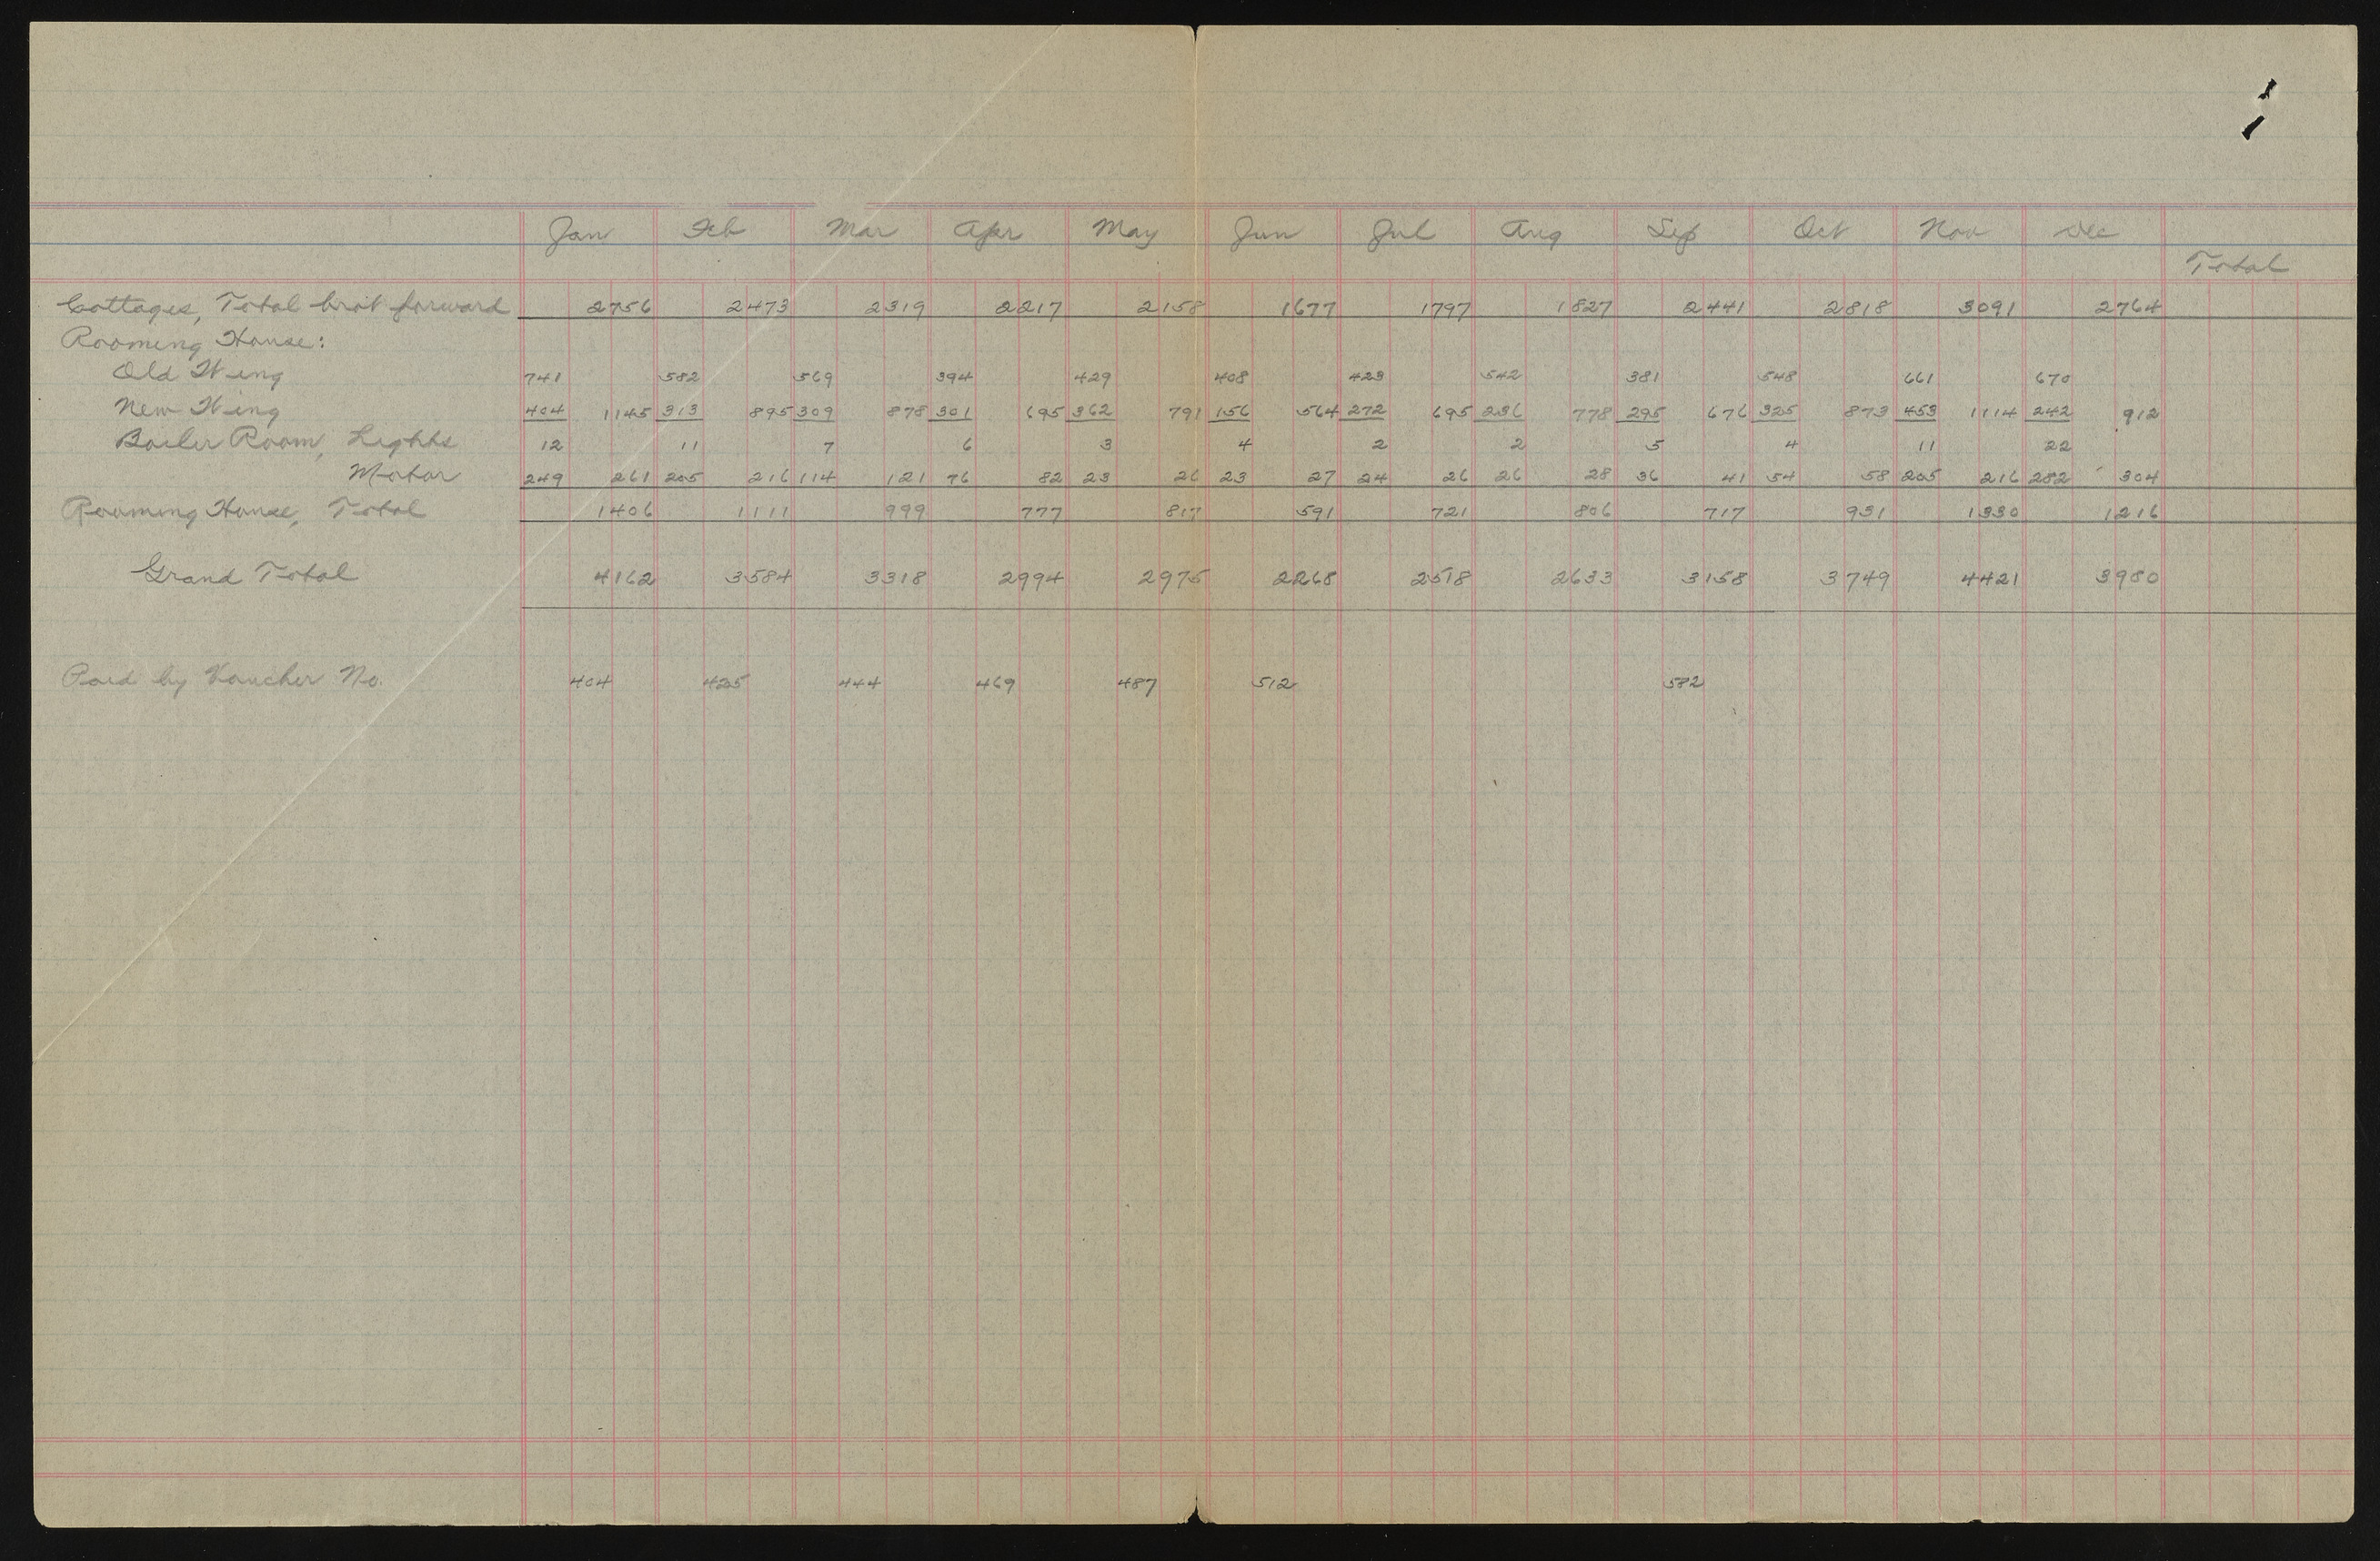 Jan Feb Mar Apr May Jun Jul Aug Sep Oct Nov Dec
Total
Cottages, Total brot forward 2756 2473 2319 2217 2158 1677 1797 1827 2441 2818 3091 2764
Rooming House:
Old Wing 741 582 569 394 429 408 423 542 381 548 661 670
New Wing 404 1145 313 895 309 878 301 695 362 791 156 564 272 695 236 778 295 676 325 873 453 1114 242 912
Boiler Room, Lights 12 11 7 6 3 4 2 2 5 4 11 22
Motor 249 261 205 216 114 121 76 82 23 26 23 27 24 26 26 28 36 41 54 58 205 216 282 304
Rooming House, Total 1406 1111 999 777 817 591 721 806 717 931 1330 1216
Grand Total 4162 3584 3318 2994 2975 2268 2518 2633 3158 3749 4421 3980
Paid by Voucher No. 404 425 444 469 487 512 582